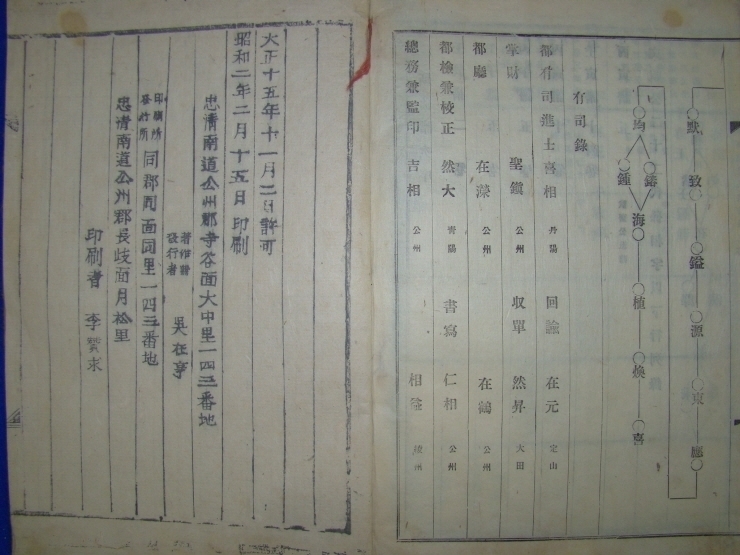 默 致 鎰 源 東
均 鍾 鑄 海 植 煥 喜
有司錄
都有司進士喜相 丹陽 回諭 在元 定山
掌財 聖鎭 公州 收單 然昇 大田
都廳 在濚 公州 在鶴 公州
都檢兼校正 然大 靑陽 書寫 仁相 公州
總務兼監印 吉相 公州 相益
大正十五年十一月二日許可
昭和二年二月十五日印刷
忠淸南道公州郡寺谷面大中里一四三番地
著作者
發行者 吳在亨
印刷所
發行所 同郡同面同里一四三番地
忠淸南道公州郡長岐面月松里
印刷者 李賢求